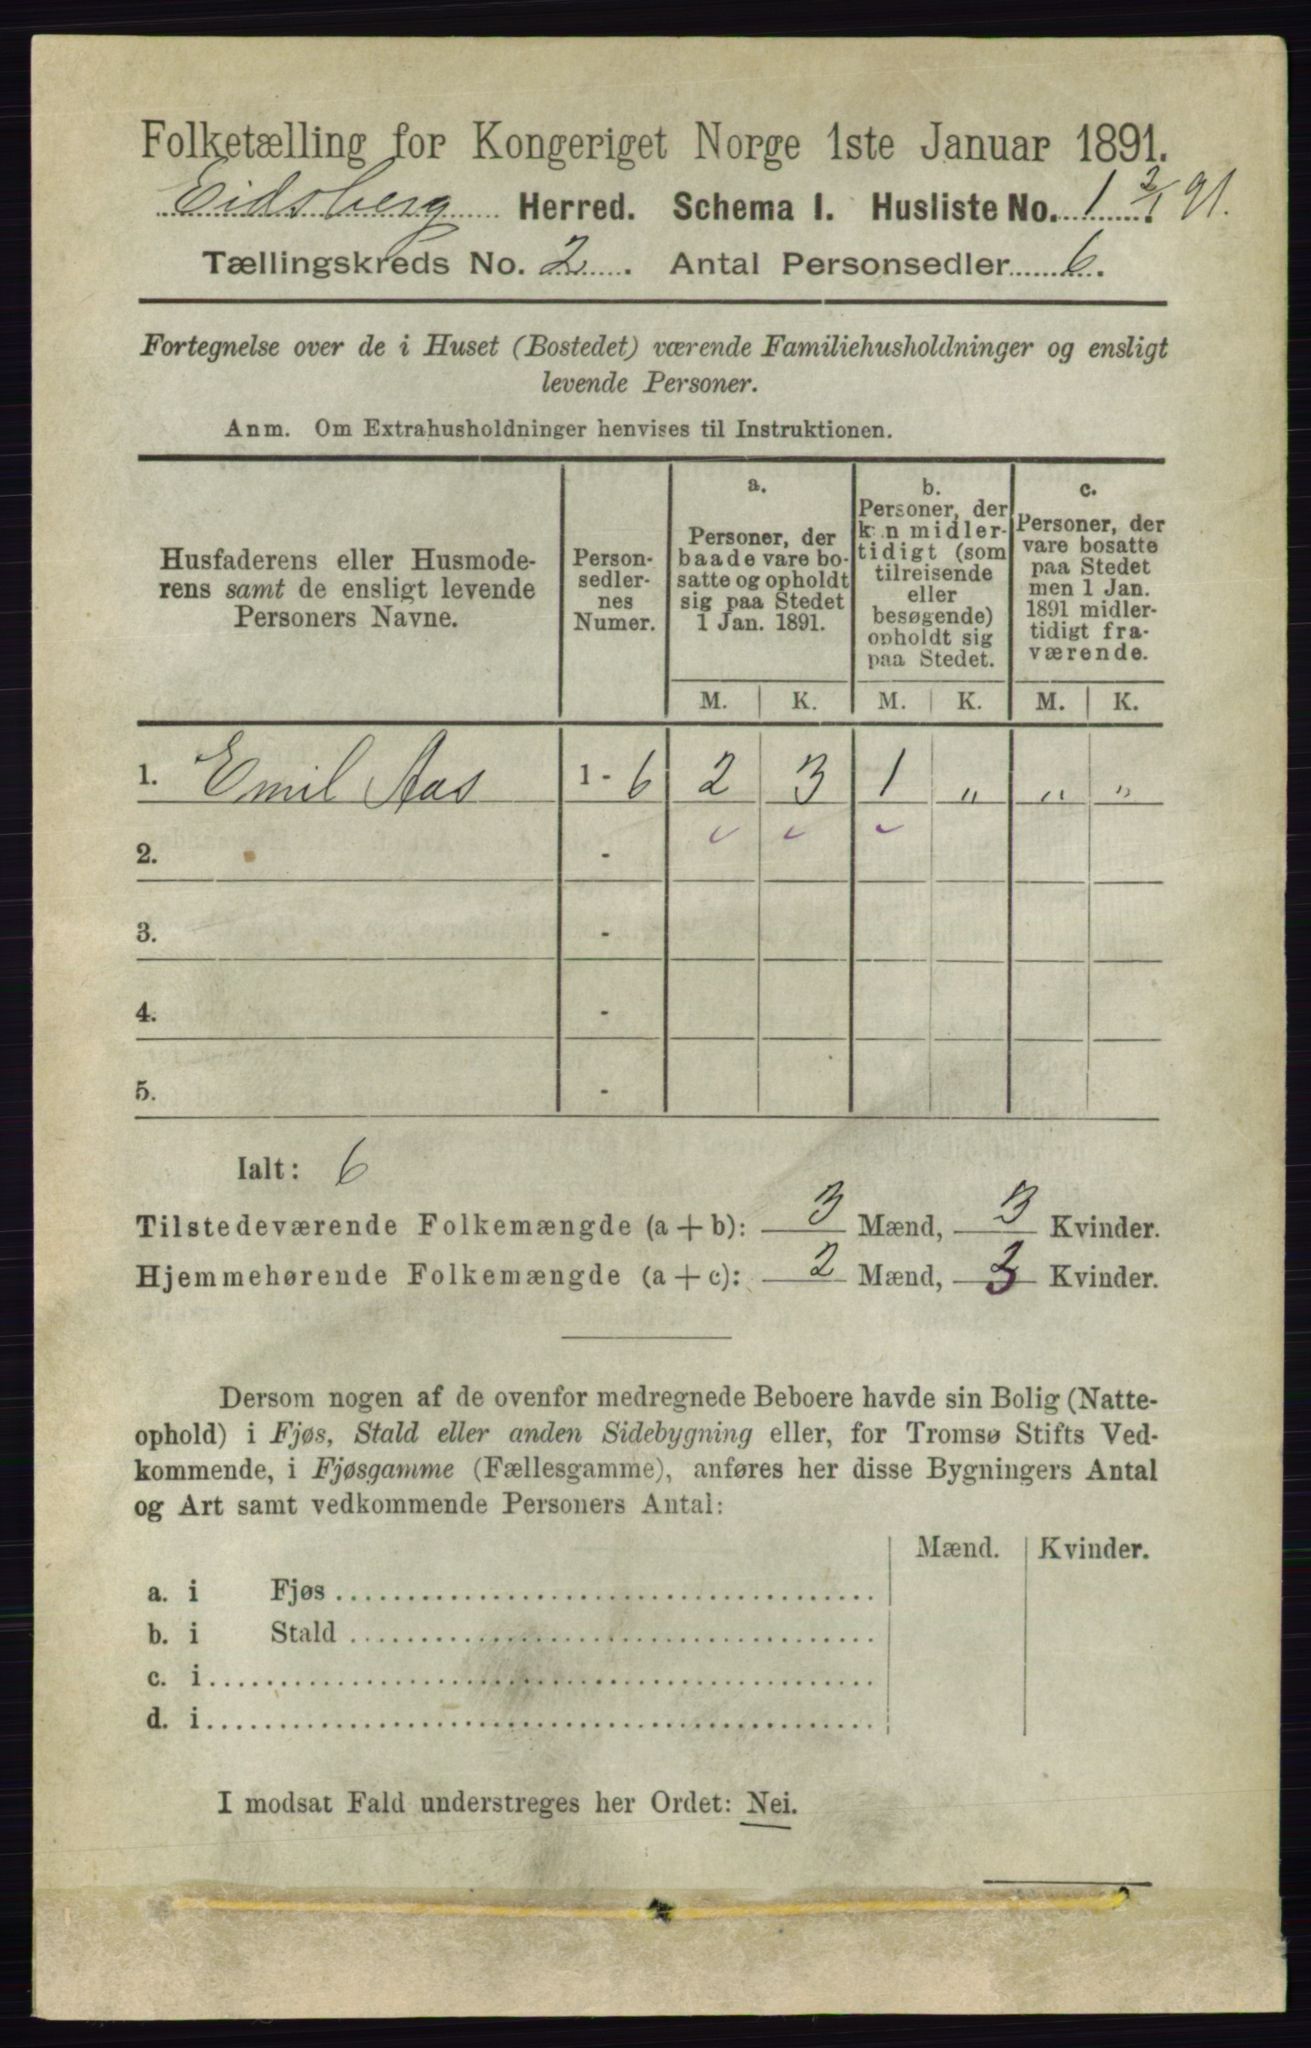 Folketælling for Kongeriget Norge 1ste Januar 1891.
Eidsberg Herred. Schema I. Husliste No. 1 2/1 91.
Tællingskreds No. 2. Antal Personsedler 6.
Fortegnelse over de i Huset (Bostedet) værende Familiehusholdninger og ensligt
levende Personer.
Anm. Om Extrahusholdninger henvises til Instruktionen.
Husfaderens eller Husmode-
rens samt de ensligt levende
Personers Navne.
Person-
sedler-
nes
Numer.
a.
Personer, der
baade vare bo-
satte og opholdt
sig paa Stedet
1 Jan. 1891.
b.
Personer, der
kun midler-
tidigt (som
tilreisende
eller
besøgende)
opholdt sig
paa Stedet.
c.
Personer, der
vare bosatte
paa Stedet
men 1 Jan.
1891 midler-
tidigt fra-
værende.
M. K. M. K. M. K.
1. Emil Aas 1 - 6 2 3 1 „ „ „
2. -
3. -
4. -
5. -
Ialt: 6
Tilstedeværende Folkemængde (a + b): 3 Mænd, 3 Kvinder.
Hjemmehørende Folkemængde (a + c): 2 Mænd, 3 Kvinder.
Dersom nogen af de ovenfor medregnede Beboere havde sin Bolig (Natte-
ophold) i Fjøs, Stald eller anden Sidebygning eller, for Tromsø Stifts Ved-
kommende, i Fjøsgamme (Fællesgamme), anføres her disse Bygningers Antal
og Art samt vedkommende Personers Antal:
Mænd. Kvinder.
a. i Fjøs
b. i Stald
c. i
d. i
I modsat Fald understreges her Ordet: Nei.